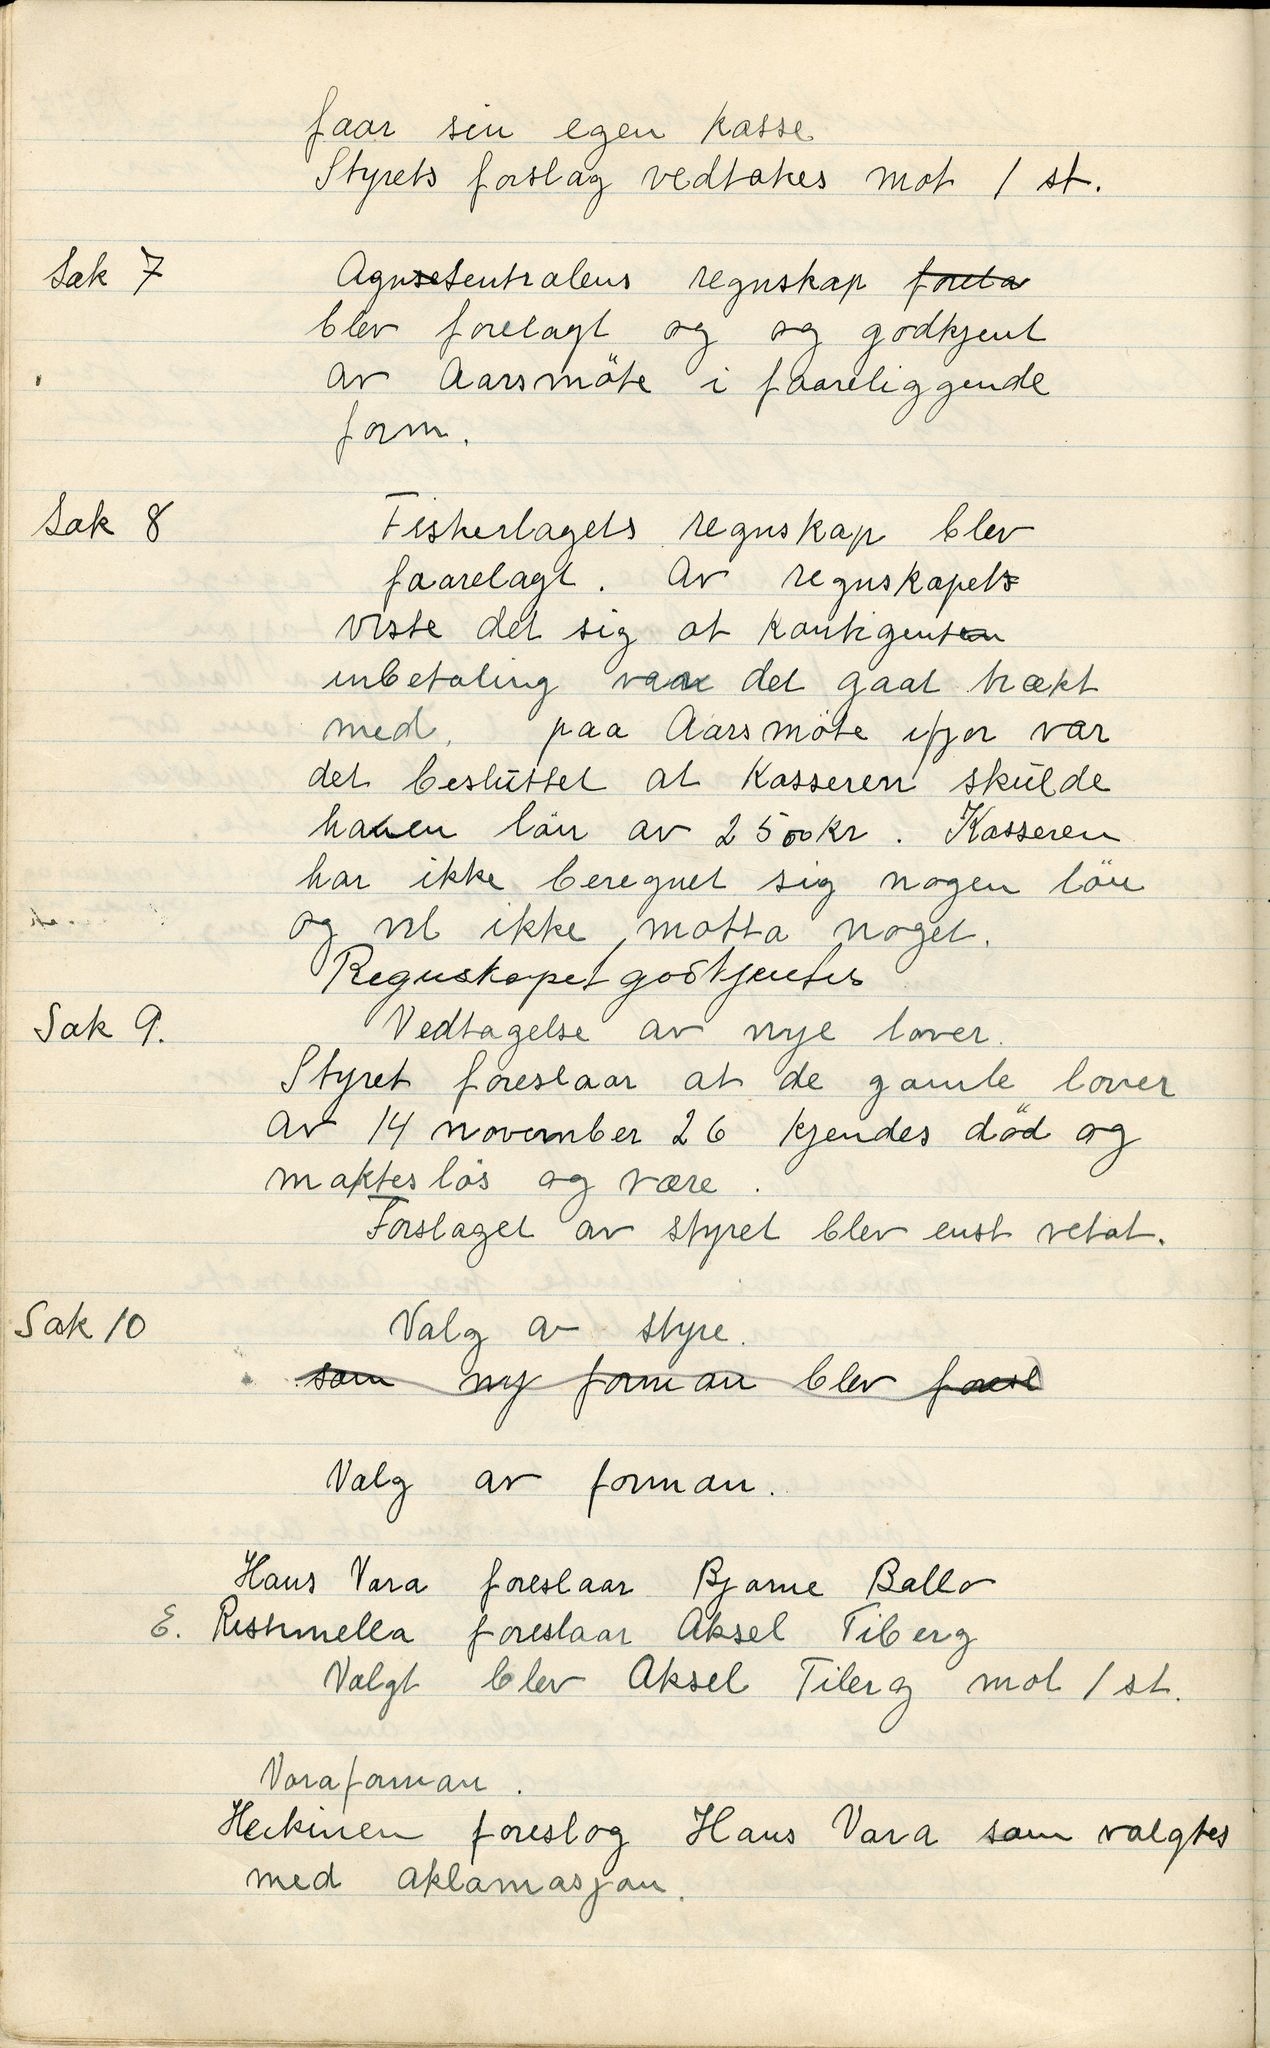 faar sin egen kasse
Styrets forslag vedtakes mot 1 st.
Sak 7 Agnsesentralens regnskap foreta
blev forelagt og og godkjent
av Aarsmöte i faareliggende
form.
Sak 8 Fiskerlagets regnskap blev
faarelagt. Av regnskapets
viste det sig at kontigenten
inbetaling var det gaat trækt
med, paa Aarsmöte ifjor var
det besluttet at Kasseren skulde
ha en lön av 2500 kr. Kasseren
har ikke beregnet sig nogen lön
og vil ikke motta noget.
Regnskapet godkjentes
Sak 9. Vedtagelse av nye lover.
Styret foreslaar at de gamle lover
av 14 november 26 kjendes död og
maktes lös og være.
Forslaget av styret blev enst vetat.
Sak 10 Valg av styre.
som ny forman blev foresl
Valg av forman.
Hans Vara foreslaar Bjarne Ballo
E. Ristimella foreslaar Aksel Tiberg
Valgt blev Aksel Tilerg mot 1 st.
Varaforman.
Heikinen foreslog Hans Vara som valgtes
med aklamasjon.